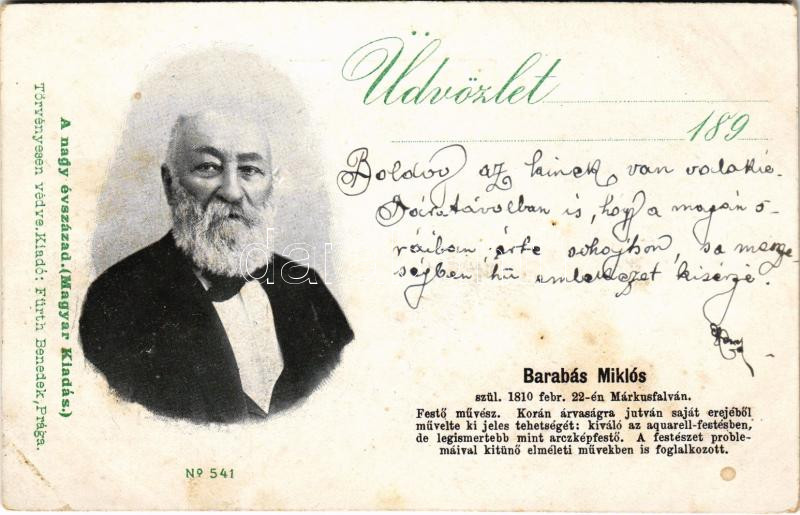 Üdvözlet
189
Boldog az kinek van valakie.
távolban is, hogy a magán ó-
ráiban, érte sohajtson, s a
hű emlékezet kisérje.
Barabás Miklós
szül. 1810 febr. 22-én Márkusfalván.
Festő művész. Korán árvaságra jutván saját erejéből
művelte ki jeles tehetségét: kiváló az aquarell-festésben,
de legismertebb mint arczképfestő. A festészet proble-
máival kitünő elméleti művekben is foglalkozott.
A nagy évszázad.(Magyar Kiadás.)
Törvényesén védve.Kiadó: Fürth Benedek,Prága.
№ 541
darabanth